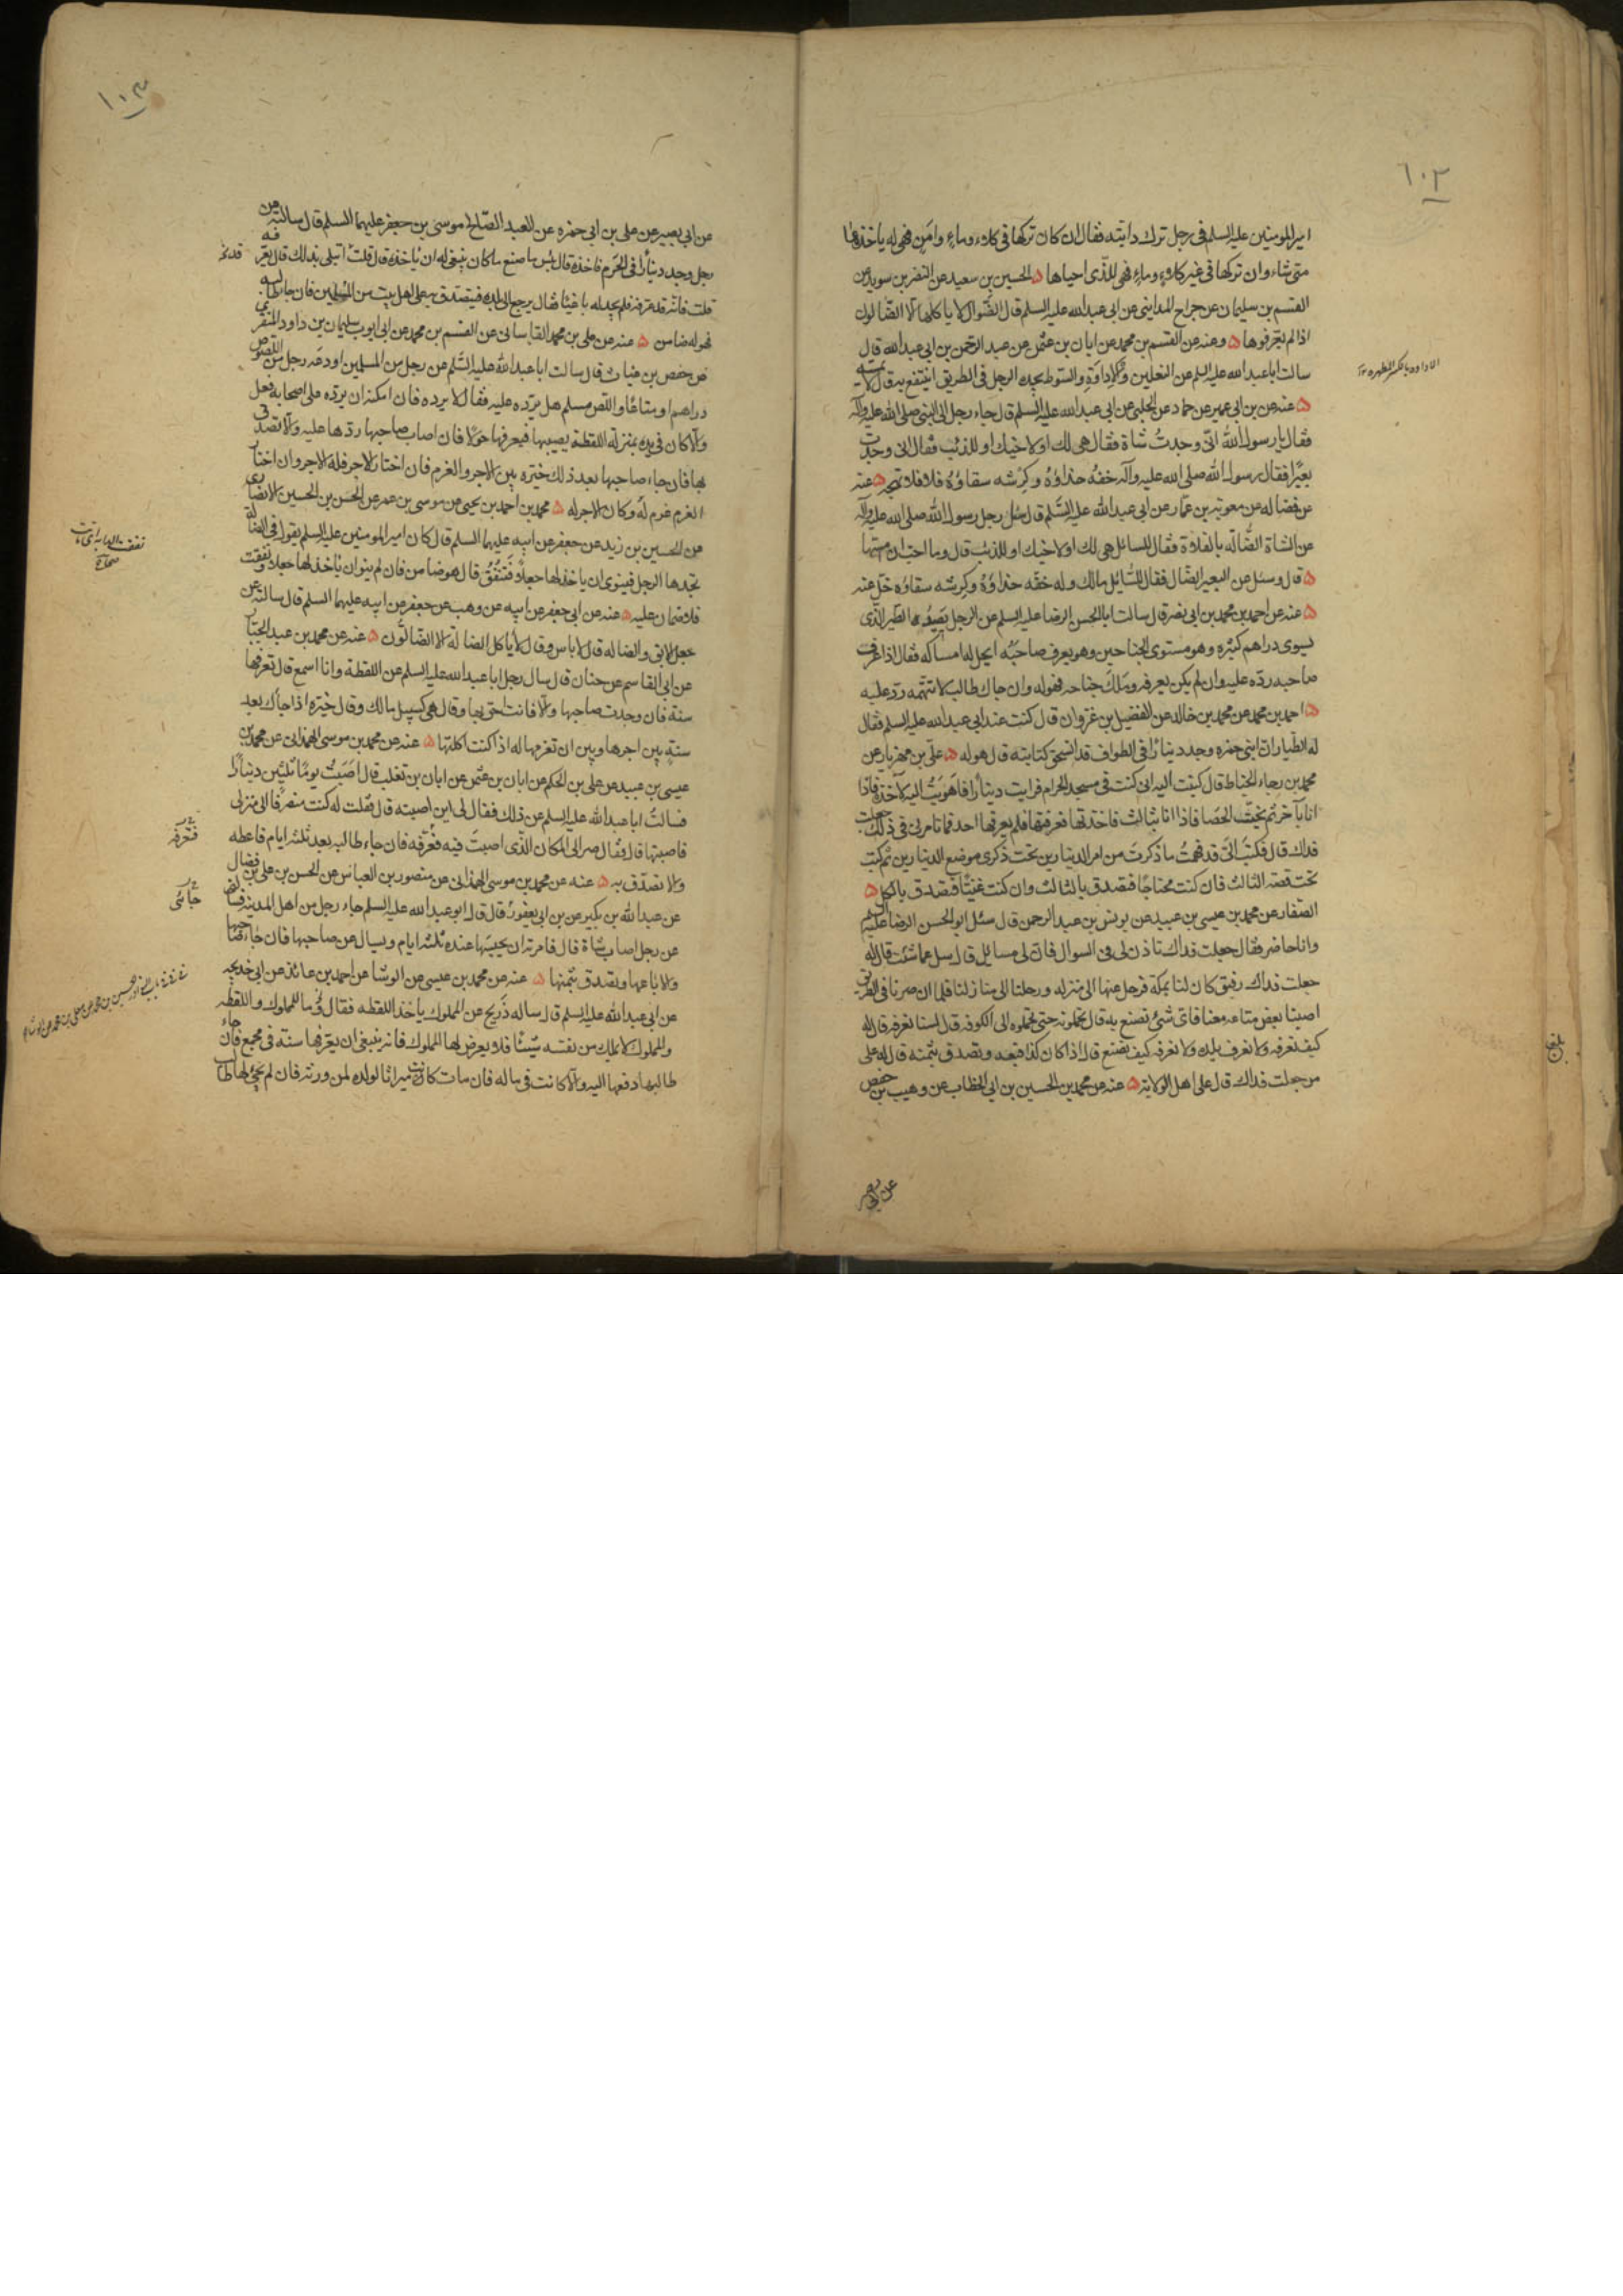 ١٠٢
امير المومنين عليه السلم فى رجل ترك دابته فقال ان كان تركها فى كلاء وماء وامن فهى له ياخذها
متى شاء وان تركها فى غير كلاء وماء فهى للذى احياها ۵ الحسين بن سعيد عن النضر بن سويد عن
القسم بن سليمان عن جراح المداينى عن ابى عبد الله عليه السلم قال الضوال لا ياكلها الا الضالون
اذا لم يعرفوها ۵ وعنه عن القسم بن محمد عن ابان بن عثمن عن عبد الرحمن بن ابى عبد الله قال
سالت ابا عبد الله عليه السلم عن النعلين والاداوة والسوط يجده الرجل فى الطريق اينتفع به قال لا يمسه
الاداوه بالكسر المطهره ١٢
۵ عنه عن بن ابى عمير عن حماد عن الحلبى عن ابى عبد الله عليه السلم قال جاء رجل الى النبى صلى الله عليه وآله
فقال يا رسول الله انى وجدتُ شاة فقال هى لك او لاخيك او للذئب فقال انى وجدت
بعيرًا فقال رسول الله صلى الله عليه وآله خفه حذاؤهُ وكرشه سقاؤهُ فلا تهجه ۵ عنه
عن فضاله عن معوية بن عمار عن ابى عبد الله عليه السلم قال سئل رجل رسول الله صلى الله عليه وآله
عن الشاة الضالة بالفلاة فقال للسائل هى لك او لاخيك او للذئب قال وما احب ان امسها
۵ قال وسئل عن البعير الضال فقال للسائل مالك وله خفه حذاؤهُ وكرشه سقاؤه خل عنه
۵ عنه عن احمد بن محمد بن ابى نصر قال سالت ابا الحسن الرضا عليه السلم عن الرجل يصيد الطير الذى
يسوى دراهم كثيره وهو مستوى الجناحين وهو يعرف صاحبه ايحل له امساكه فقال اذا عرفت
صاحبه رده عليه وان لم يكن يعرفه وملك جناحه فهو له وان جاك طالب لا تتهمه رد عليه
۵ احمد بن محمد عن محمد بن خالد عن الفضيل بن غزوان قال كنت عند ابى عبد الله عليه السلم فقال
له الطيار ان ابنى حمزه وجد دينارًا فى الطواف قد انسحق كتابته قال هو له ۵ على بن مهزيار عن
محمد بن رجاء الخياط قال كتبت اليه انى كنت فى مسجد الحرام فرايت دينارًا فاهويتُ اليه لآخذه فاذا
انا بآخر ثم بحثت الحصا فاذا انا بثالث فاخذتها فعرفتها فلم يعرفها احد فما تامرنى فى ذلك جعلت
فداك قال فكتب الىّ قد فهمتُ ما ذكرتَ من امر الدينارين تحت ذكرى موضع الدينارين ثم كتب
تحت قصة الثالث فان كنت محتاجًا فتصدق بالثالث وان كنت غنيًا فتصدق بالكل ۵
الصفار عن محمد بن عيسى بن عبيد عن يونس بن عبد الرحمن قال سئل ابو الحسن الرضا عليه السلم
وانا حاضر فقال جعلت فداك تاذن لى فى السوال فان لى مسائل قال سل عما شئت قال له
جعلت فداك رفيق كان لنا بمكة فرحل عنها الى منزله ورحلنا الى منازلنا فلما ان صرنا فى الطريق
اصبنا بعض متاعه معنا فاى شئ نصنع به قال تحملونه حتى تحملوه الى الكوفه قال لسنا نعرفه قال له
كيف نعرفه ولا نعرف بلده ولا نعرفه كيف نصنع قال اذا كان كذا فبعه وتصدق بثمنه قال له على
من جعلت فداك قال على اهل الولاية ۵ عنه عن محمد بن الحسين بن ابى الخطاب عن وهيب بن حفص
بلغ
عن ابى بصير
١٠٣
عن ابى بصير عن على بن ابى حمزه عن العبد الصالح موسى بن جعفر عليهما السلم قال سالته عن
رجل وجد دينارًا فى الحرم فاخذه قال بئس ما صنع ما كان ينبغى له ان ياخذه قال قلت ابتلى بذلك قال يعرفه
قلت فانه قد عرفه فلم يجد له باغيًا فقال يرجع الى بلده فيتصدق به على اهل بيت من المسلمين فان جا طالبه
فهو له ضامن ۵ عنه عن على بن محمد القاسانى عن القسم بن محمد عن ابى ايوب سليمان بن داود المنقرى
عن حفص بن غياث قال سالت ابا عبد الله عليه السلم عن رجل من المسلمين اودعه رجل من اللصوص
دراهم او متاعًا واللص مسلم هل يرده عليه فقال لا يرده فان امكنه ان يرده على اصحابه فعل
والا كان فى يده بمنزلة اللقطة يصيبها فيعرفها حولًا فان اصاب صاحبها ردها عليه والا تصدق
بها فان جاء صاحبها بعد ذلك خيره بين الاجر والغرم فان اختار الاجر فله الاجر وان اختار
الغرم غرم له وكان الاجر له ۵ محمد بن احمد بن يحيى عن موسى بن عمر عن الحسن بن الحسين الانصارى
عن الحسين بن زيد عن جعفر عن ابيه عليهما السلم قال كان امير المومنين عليه السلم يقول فى الضالة
يجدها الرجل فينوى ان ياخذ لها جعلًا فتنفق قال هو ضامن فان لم ينو ان ياخذ لها جعلا ونفقت
فلا ضمان عليه ۵ عنه عن ابى جعفر عن ابيه عن وهب عن جعفر عن ابيه عليهما السلم قال سالته عن
جعل الابق والضاله قال لا باس وقال لا ياكل الضالة الا الضالون ۵ عنه عن محمد بن عبد الجبار
عن ابى القاسم عن حنان قال سال رجل ابا عبد الله عليه السلم عن اللقطة وانا اسمع قال تعرفها
سنة فان وجدت صاحبها والا فانت احق بها وقال هى كسبيل مالك وقال خيره اذا جاك بعد
سنة بين اجرها وبين ان تغرمها له اذا كنت اكلتها ۵ عنه عن محمد بن موسى الهمذانى عن محمد بن
عيسى بن عبيد عن على بن الحكم عن ابان بن عثمن عن ابان بن تغلب قال اصبتُ يومًا ثلثين دينارًا
فسالتُ ابا عبد الله عليه السلم عن ذلك فقال لى اين اصبته قال فقلت له كنت منصرفًا الى منزلى
فاصبتها قال فقال صر الى المكان الذى اصبت فيه فعرفه فان جاء طالبه بعد ثلثة ايام فاعطه
والا تصدق به ۵ عنه عن محمد بن موسى الهمذانى عن منصور بن العباس عن الحسن بن على بن فضال
عن عبد الله بن بكير عن بن ابى يعفور قال قال ابو عبد الله عليه السلم جاء رجل من اهل المدينة فسالنى
عن رجل اصاب شاة قال فامرته ان يحبسها عنده ثلثة ايام ويسال عن صاحبها فان جاء صاحبها
والا باعها وتصدق بثمنها ۵ عنه عن محمد بن عيسى عن الوشا عن احمد بن عائذ عن ابى خديجه
عن ابى عبد الله عليه السلم قال ساله ذريح عن المملوك ياخذ اللقطه فقال وما للمملوك واللقطه
والمملوك لا يملك من نفسه شيئًا فلا يعرض لها المملوك فانه ينبغى ان يعرفها سنة فى مجمع فان جاء
طالبها دفعها اليه والا كانت فى ماله فان مات كانت ميراثا لولده لمن ورثه فان لم يجئ لها طالب
نفقت الدابه اى ماتت
صحاح
فتعرفه
جائنى